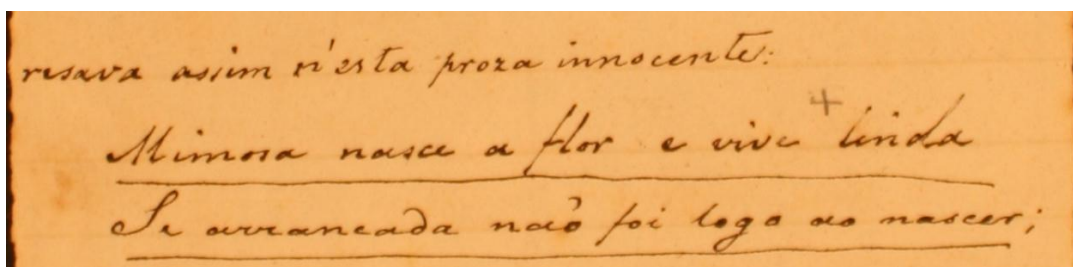 resava assim n'esta proza innocente:
Mimosa nasce a flor e vive + linda
Se arrancada não foi logo ao nascer;